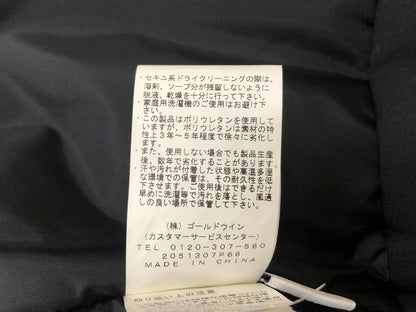 ・セキユ系ドライクリーニングの際は、
溶剤、ソープ分が残留しないように
脱液、乾燥を十分に行って下さい。
・家庭用洗濯機のご使用はお避け下
さい。
・この製品はポリウレタンを使用して
いますが、ポリウレタンは素材の特
性上3年～5年程度で徐々に劣化し
ます。
・また、使用しない場合でも製品生産
後、数年で劣化することがあります。
・汗や汚れが付着した状態や高温多湿
な環境での保管は、その耐久性を低
下させます。ご使用後はできるだけ
早めに洗濯等で汚れを落とし、風通
しの良い場所で保管して下さい。
(株) ゴールドウイン
(カスタマーサービスセンター)
TEL 0120-307-560
2051307P66
MADE IN CHINA
取り扱い上の注意